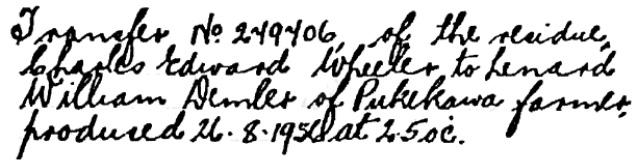 Transfer No 249406, of the residue,
Charles Edward Wheeler to Lenard
William Demler of Pukekawa farmer,
produced 26.8.1936 at 2.5 oc.